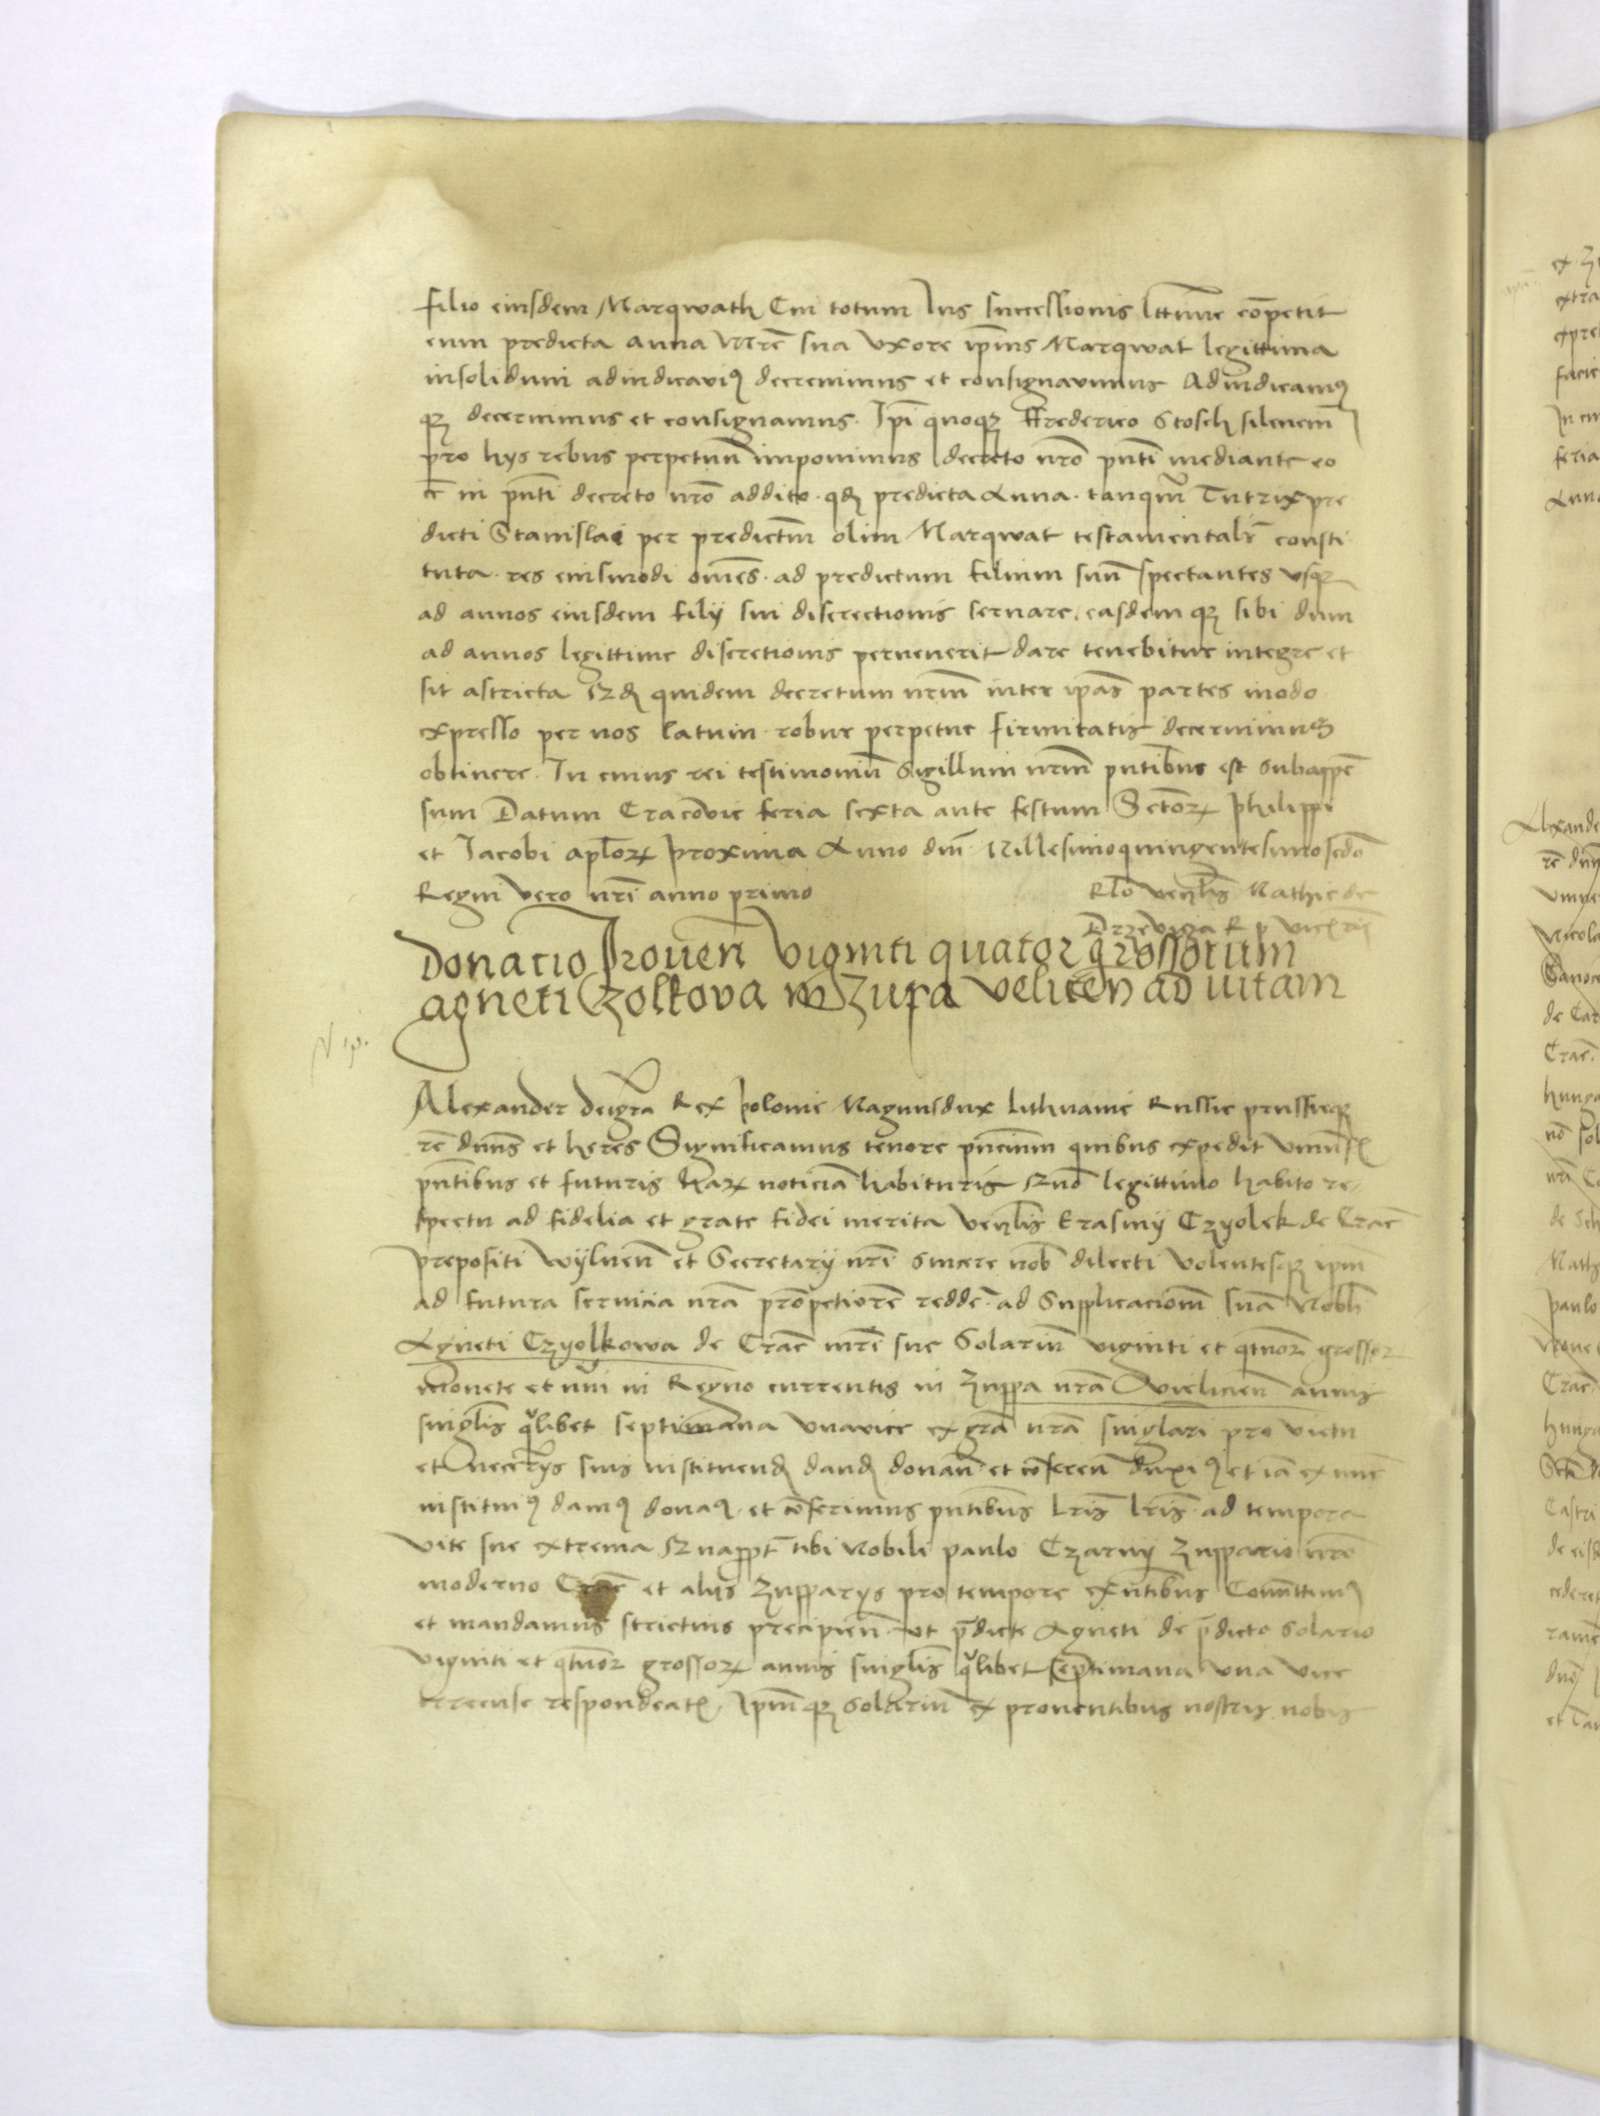 filio eiusdem Marqwath Cui totum Ius successionis lttime cōpetit
cum predicta Anna mr̄e sua uxore ip̄ius Marqwat legittima
insolidum adiudicaviꝰ decrevimus et consignavimus Adiudicamꝰ
qꝫ decernimus et consignamus. Ip̄i quoqꝫ Ffrederico Stosch silenciū
pro hys rebus perpetuū imponimus decreto nr̄o pn̄ti mediante eo
c̄ in pn̄ti decreto nr̄o addito. qd̄ predicta Anna. tanqm̄ Tutrix pre
dicti Stanislai per predictūm olim Marqwat testamentalr̄ consti
tuta. res eiusmodi om̄es. ad predictum filium suū spectantes usqꝫ
ad annos eiusdem filij sui discrectionis servare. easdem qꝫ sibi dum
ad annos legittime discretionis pervenerit dare tenebitur integre et
sit astricta Qd̄ quidem decretum nrm̄ inter ip̄as partes modo
expresso per nos latum. robur perpetue firmitatis decernimus
obtinere. In cuius rei testimoniū Sigillum nrm̄ pn̄tibus est subappē
sum Datum Cracovie feria sexta ante festum Sctōꝝ Philippi
et Jacobi aplōꝝ proxima Anno dnī Millesimoquingentesimo sc̄do
Regni vero nrī anno primo Rlō venl̄is Mathie de
Drzewiza R p vicecanrij
Donacio Proven Viginti quator grossorum
agneti Czolkova in Zupa Velicen ad vitam
Alexander dei gr̄a Rex Polonie Magnusdux Lithuanie Russie prussieqꝫ
r̄e dnūs et heres Significamus tenore pn̄cium quibus expedit univ̄sꝭ
pn̄tibus et futuris haꝝ noticiā habituris Quō legittimo habito re
spectu ad fidelia et grate fidei merita venl̄is Erasmij Czyolek de Crac̄
prepositi Wijlnen̄ et Secretarij nrī sincere nob̄ dilecti volentesqꝫ ipm̄
ad futura servicia nrā prōpctiorē reddē. ad Supplicacionē suā Nobl̄i
Agneti Czyolkowa de Crac̄ mr̄i sue Solariū viginti et q̄tuor grossoꝝ
monete et nūi in Regno currentis in Zuppa nrā Wielicien̄ annis
singl̄is q̄libet septimana unavice ex grā nrā singl̄ari pro victu
et necc̄rijs suis instituend̄ dand̄ donan̄ et cōferen̄ duxiꝰ et iā ex nūc
instituiꝰ damꝰ donaꝰ. et cōferimus pn̄tibus Lrīs lrīs. ad tempora
vite sue extrema Quapp̄t tibi Nobili Paulo Czarny Zuppario nr̄o
moderno Crac̄ et alijs Zupparijs pro tempore exn̄tibus Comittimꝰ
et mandamus strictius precipien̄. ut p̄dicte Agneti de p̄dicto solario
viginti et q̄tuor grossoꝝ annis singl̄is q̄libet septimana una vice
respondeatꝭ. Ipm̄qꝫ solariū ex proventibus nostris nobis